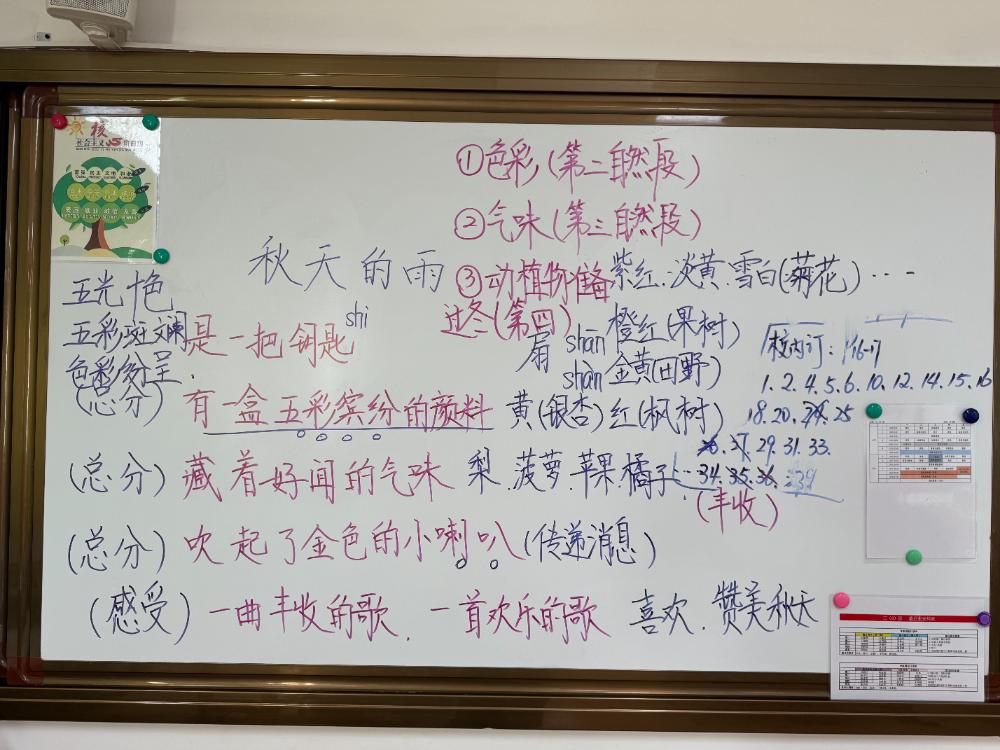 核
社会主义
①色彩(第二自然段)
②气味(第三自然段)
③动植物准备
过冬(第四)
秋天的雨
紫红.淡黄.雪白(菊花)…
五光十色
五彩斑斓
色彩缤纷呈.
是一把钥匙
shi
扇 shān
shàn
橙红(果树)
金黄(田野)
校内订: 16-17
1.2.4.5.6.10.12.14.15.16
18.20.24.25
26.27.29.31.33.
34.35.36.39
(总分) 有一盒五彩缤纷的颜料 黄(银杏)红(枫树)
(总分) 藏着好闻的气味 梨.菠萝.苹果.橘子…
(丰收)
(总分) 吹起了金色的小喇叭(传递消息)
(感受) 一曲丰收的歌. 一首欢乐的歌 喜欢.赞美秋天